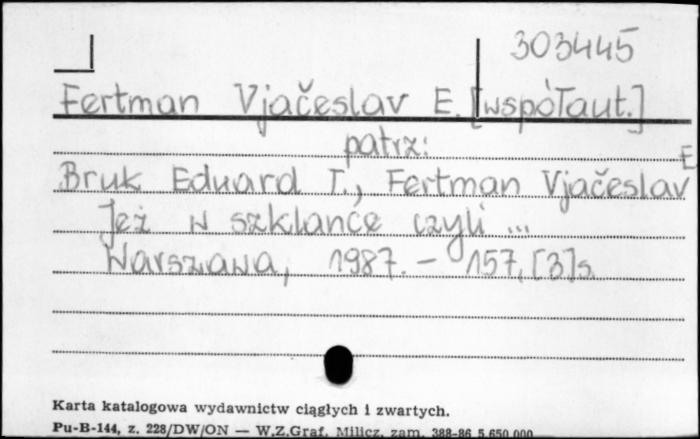 303445
Fertman Vjačeslav E. [współaut.]
patrz:
Bruk Eduard T., Fertman Vjačeslav E
Jeż w szklance czyli ...
Warszawa, 1987. - 157, [3]s.
Karta katalogowa wydawnictw ciągłych i zwartych.
Pu-B-144, z. 228/DW/ON — W.Z.Graf. Milicz, zam. 388-86 5.650.000